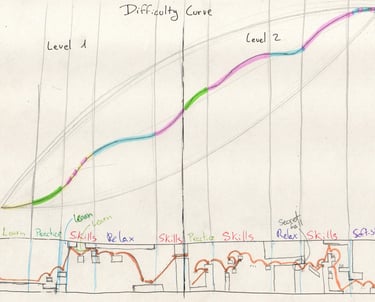 Difficulty Curve
Level 1
Level 2
Learn
Learn
Secret
Learn Practice Skills Relax Skills Practice Skills Relax Skills